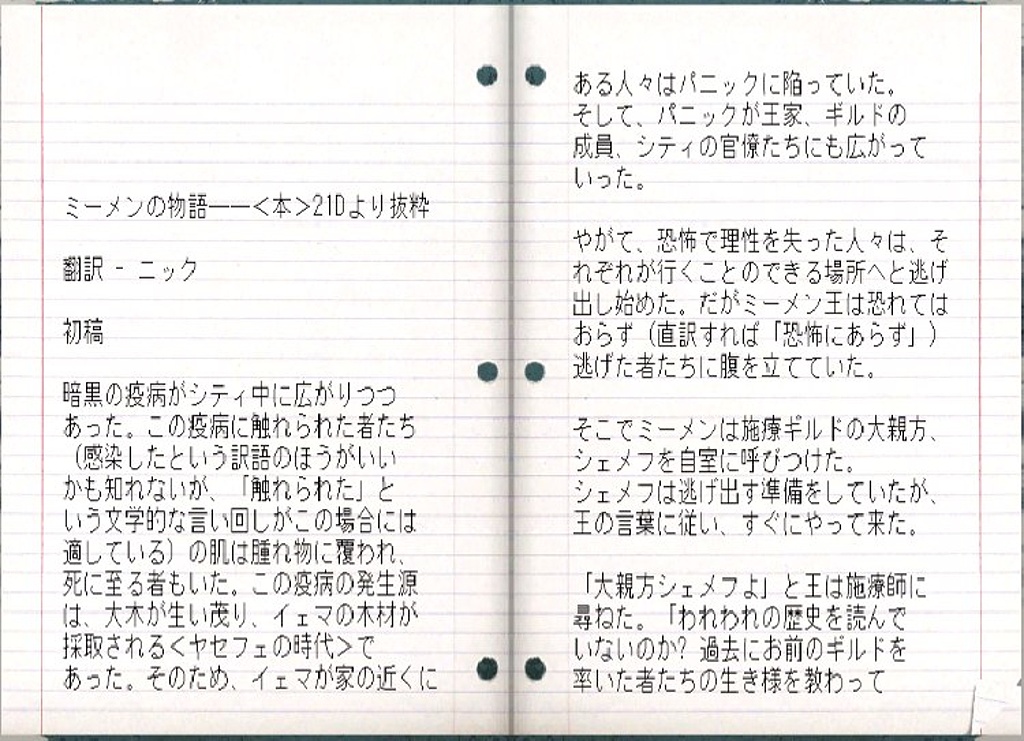 ミーメンの物語――<本>21Dより抜粋
翻訳 - ニック
初稿
暗黒の疫病がシティ中に広がりつつ
あった。この疫病に触れられた者たち
(感染したという訳語のほうがいい
かも知れないが、「触れられた」と
いう文学的な言い回しがこの場合には
適している)の肌は腫れ物に覆われ、
死に至る者もいた。この疫病の発生源
は、大木が生い茂り、イェマの木材が
採取される<ヤセフェの時代>で
あった。そのため、イェマが家の近くに
ある人々はパニックに陥っていた。
そして、パニックが王家、ギルドの
成員、シティの官僚たちにも広がって
いった。
やがて、恐怖で理性を失った人々は、そ
れぞれが行くことのできる場所へと逃げ
出し始めた。だがミーメン王は恐れては
おらず(直訳すれば「恐怖にあらず」)
逃げた者たちに腹を立てていた。
そこでミーメンは施療ギルドの大親方、
シェメフを自室に呼びつけた。
シェメフは逃げ出す準備をしていたが、
王の言葉に従い、すぐにやって来た。
「大親方シェメフよ」と王は施療師に
尋ねた。「われわれの歴史を読んで
いないのか? 過去にお前のギルドを
率いた者たちの生き様を教わって